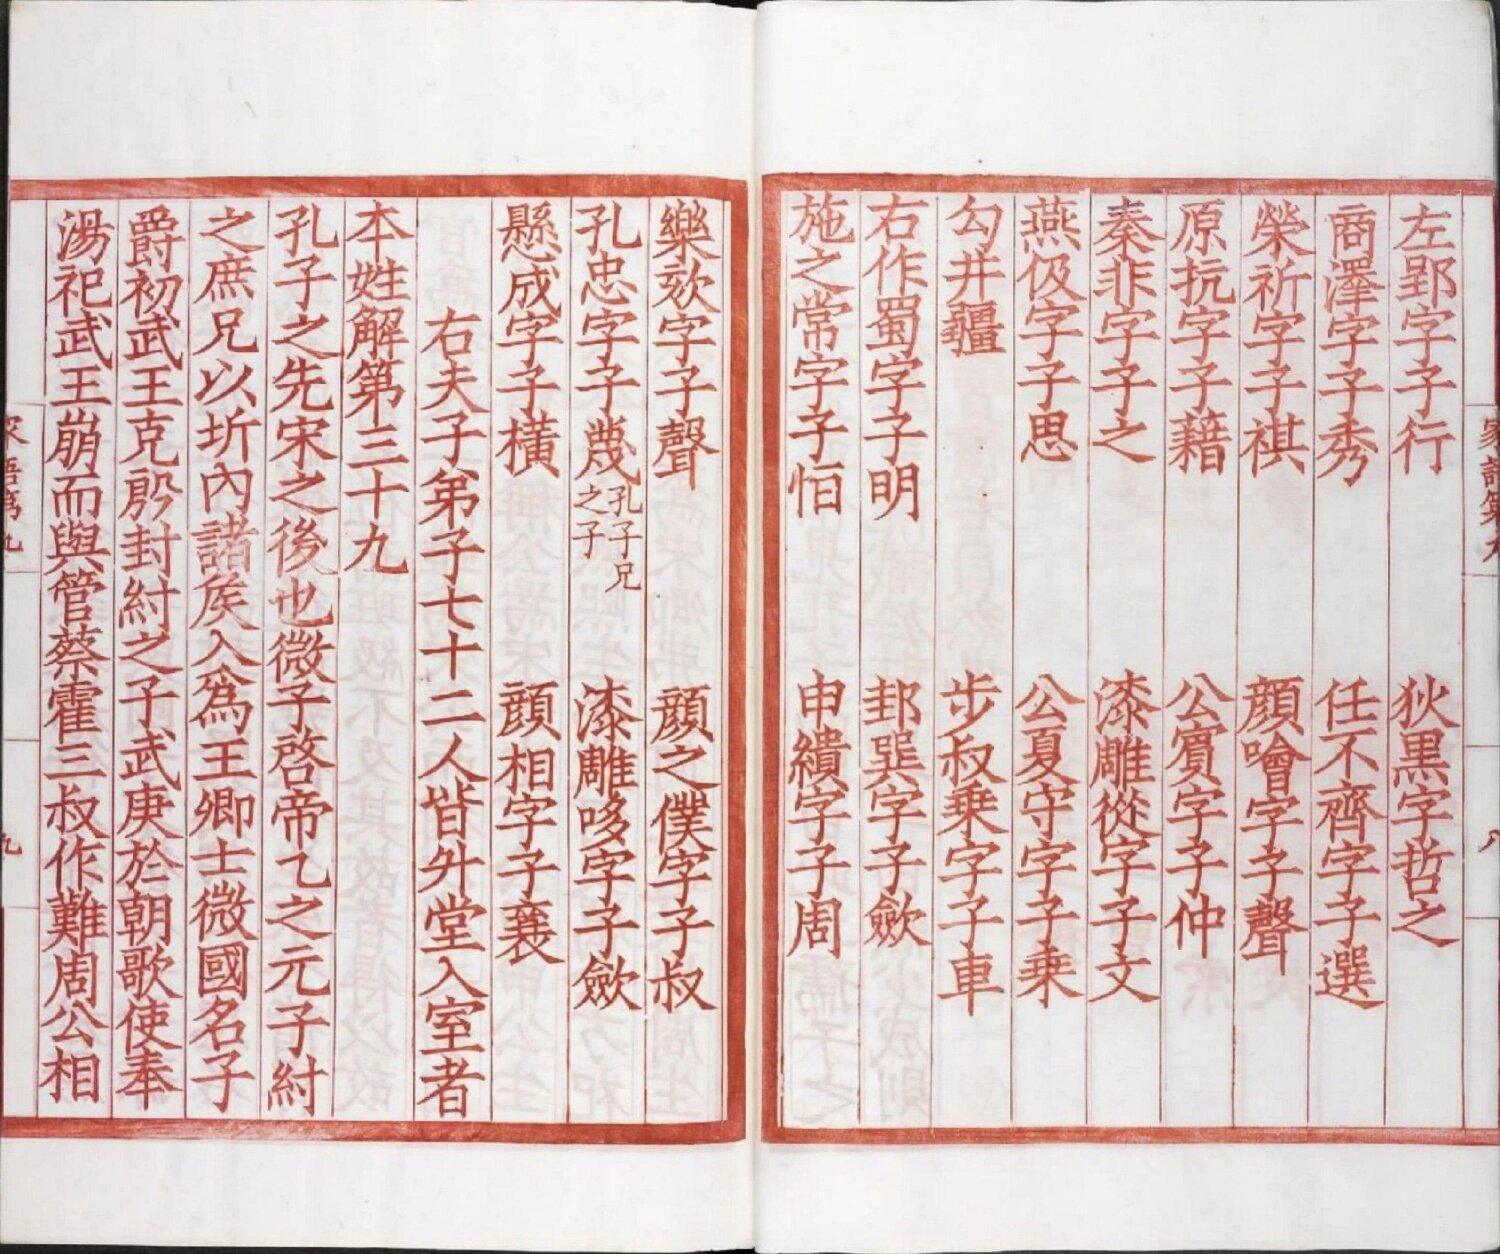 左郢字子行　狄黒字哲之
商澤字子秀　任不齊字子選
榮祈字子祺　顔噲字子聲
原抗字子藉　公賔字子仲
秦非字子之　漆雕從字子文
燕伋字子思　公夏守字子乗
勾井疆　步叔乗字子車
右作蜀字子明　邽巽字子歛
施之常字子怕　申繢字子周
樂欬字子聲　顔之僕字子叔
孔忠字子蔑　孔子兄之子　漆雕哆字子歛
懸成字子横　顔相字子襄
右夫子弟子七十二人皆升堂入室者
本姓解第三十九
孔子之先宋之後也微子啓帝乙之元子紂
之庶兄以圻内諸侯入爲王卿士微國名子
爵初武王克殷封紂之子武庚於朝歌使奉
湯祀武王崩而與管蔡霍三叔作難周公相
家語第九
八
九